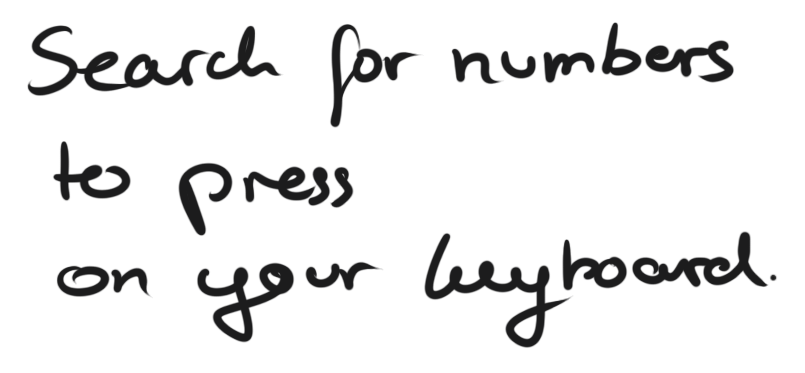 Search for numbers
to press
on your keyboard.